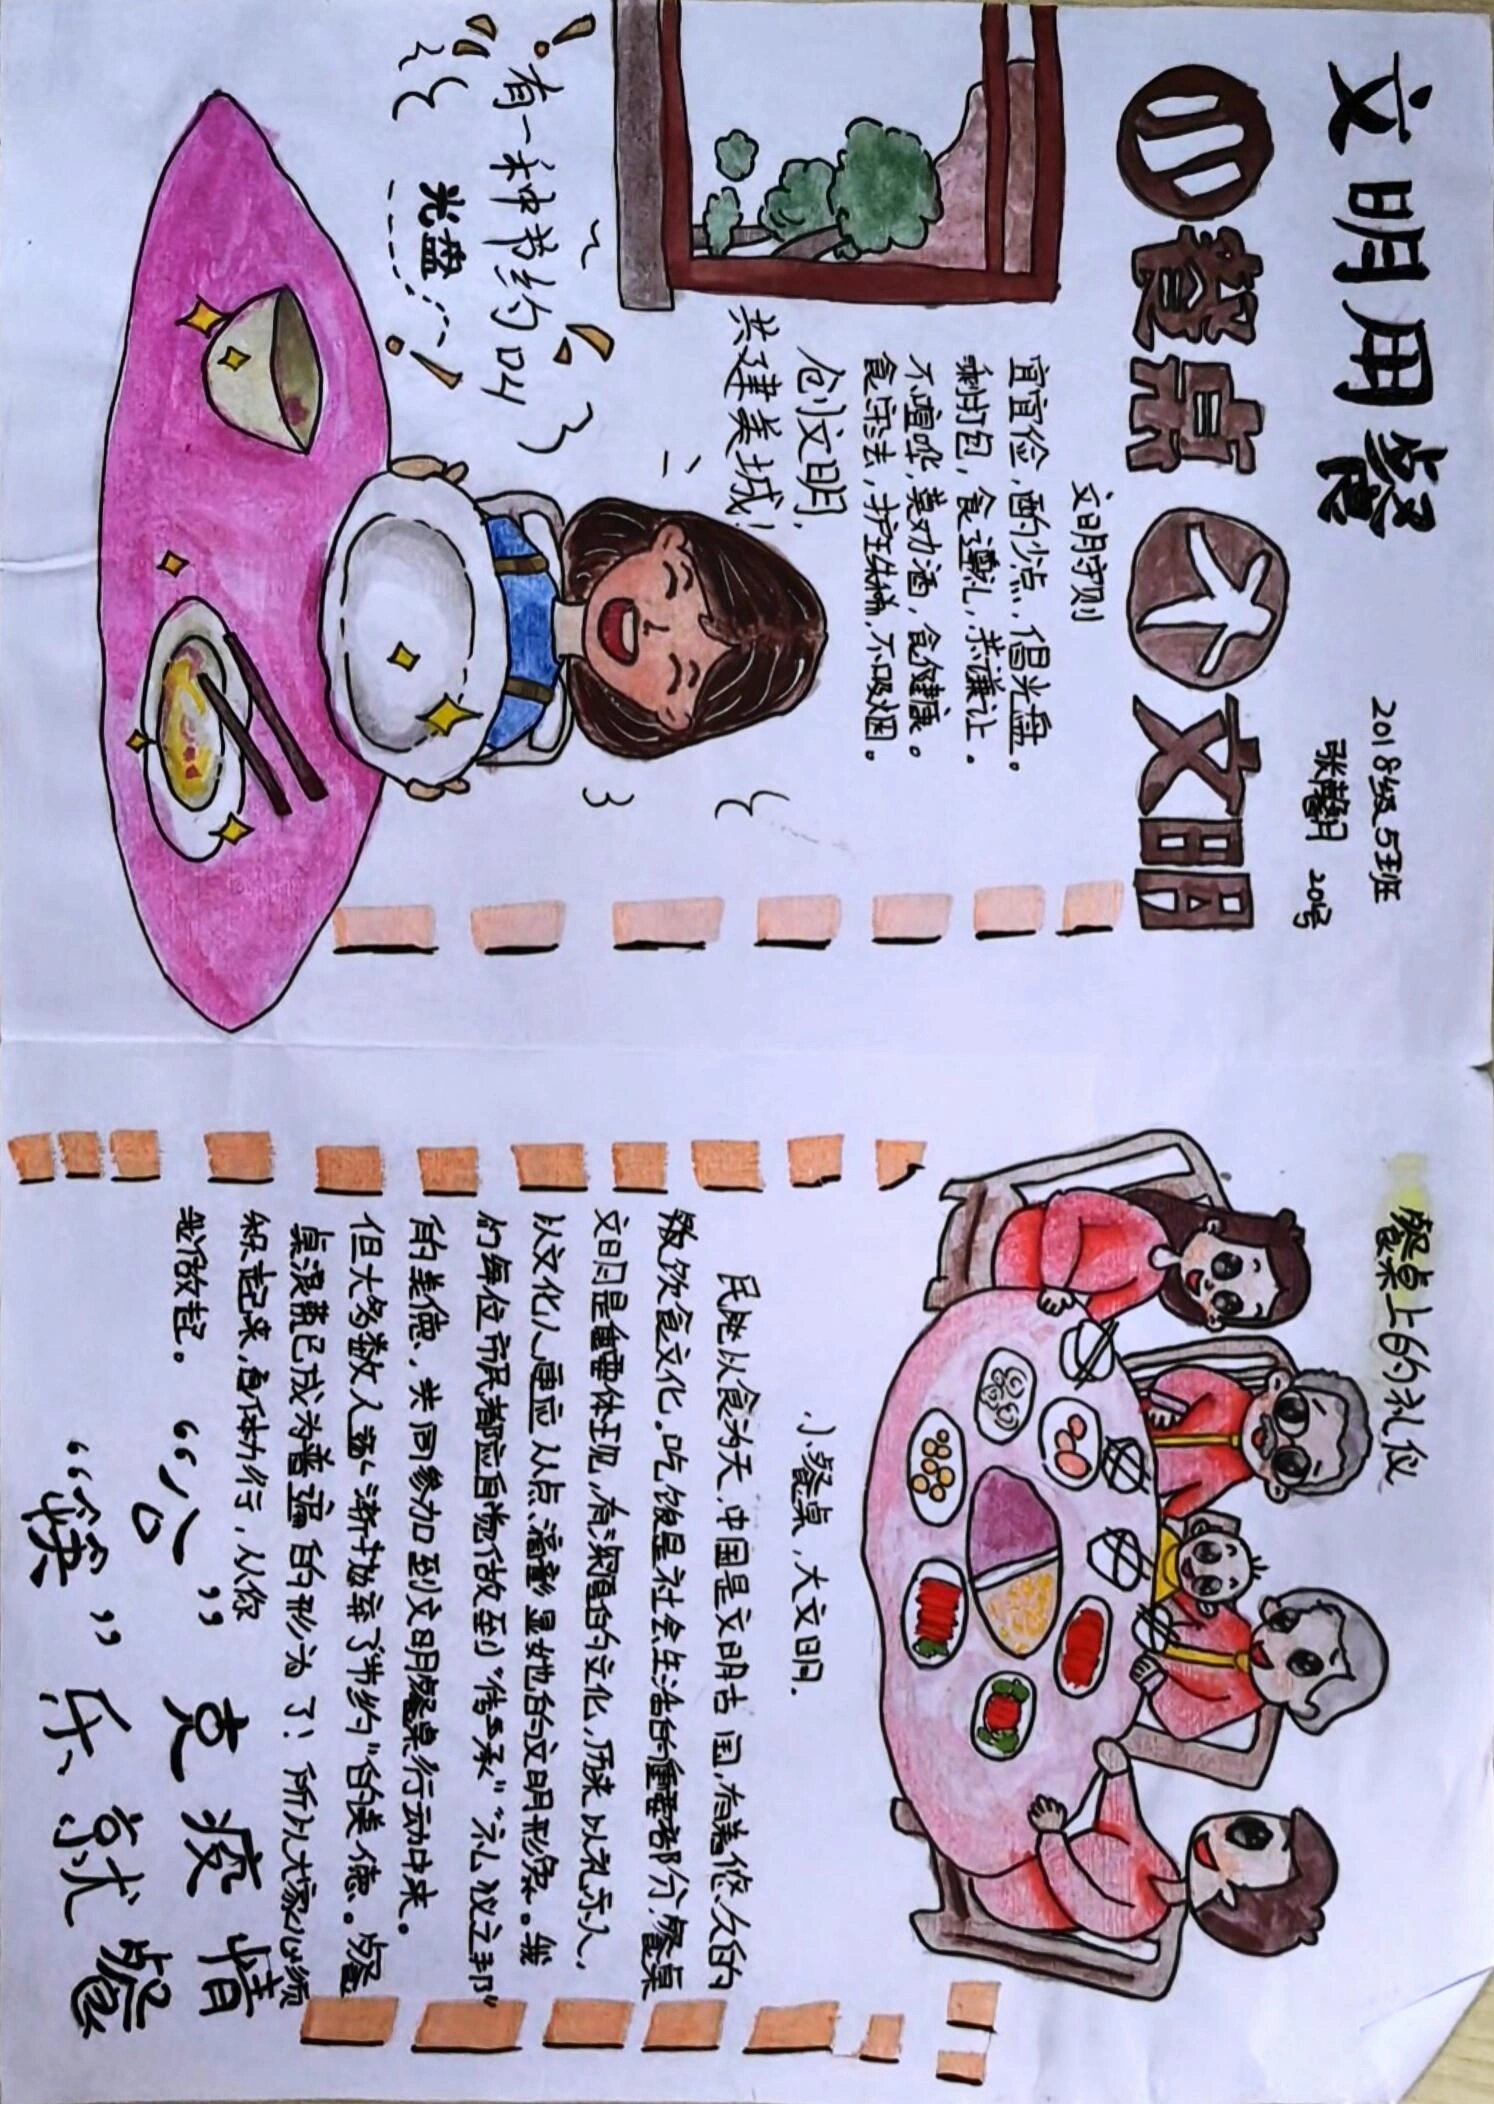 文明用餐
2018级5班
张馨月 20号
小餐桌大文明
文明守则
宜宜俭,酌少点,倡光盘。
剩打包,食遵礼,恭谦让。
不喧哗,莫劝酒,食健康。
食守法,护珍稀,不吸烟。
创文明,
共建美城!
有一种节约叫
光盘
餐桌上的礼仪
小餐桌,大文明.
民以食为天,中国是文明古国,有着悠久的
饮食文化。吃饭是社会生活的重要部分,餐桌
文明是重要体现,有深厚的文化,历来以礼示人,
以文化人,更应从点滴彰显她的文明形象。我
们每位市民都应自觉做到“传承”“礼仪之邦”
的美德,共同参加到文明餐桌行动中来。
但大多数人逐渐摒弃了“节约”的美德。餐
桌浪费已成为普遍的形为了!所以大家必须
积起来,身体力行,从你
我做起。
“公”克疫情
“筷”乐就餐